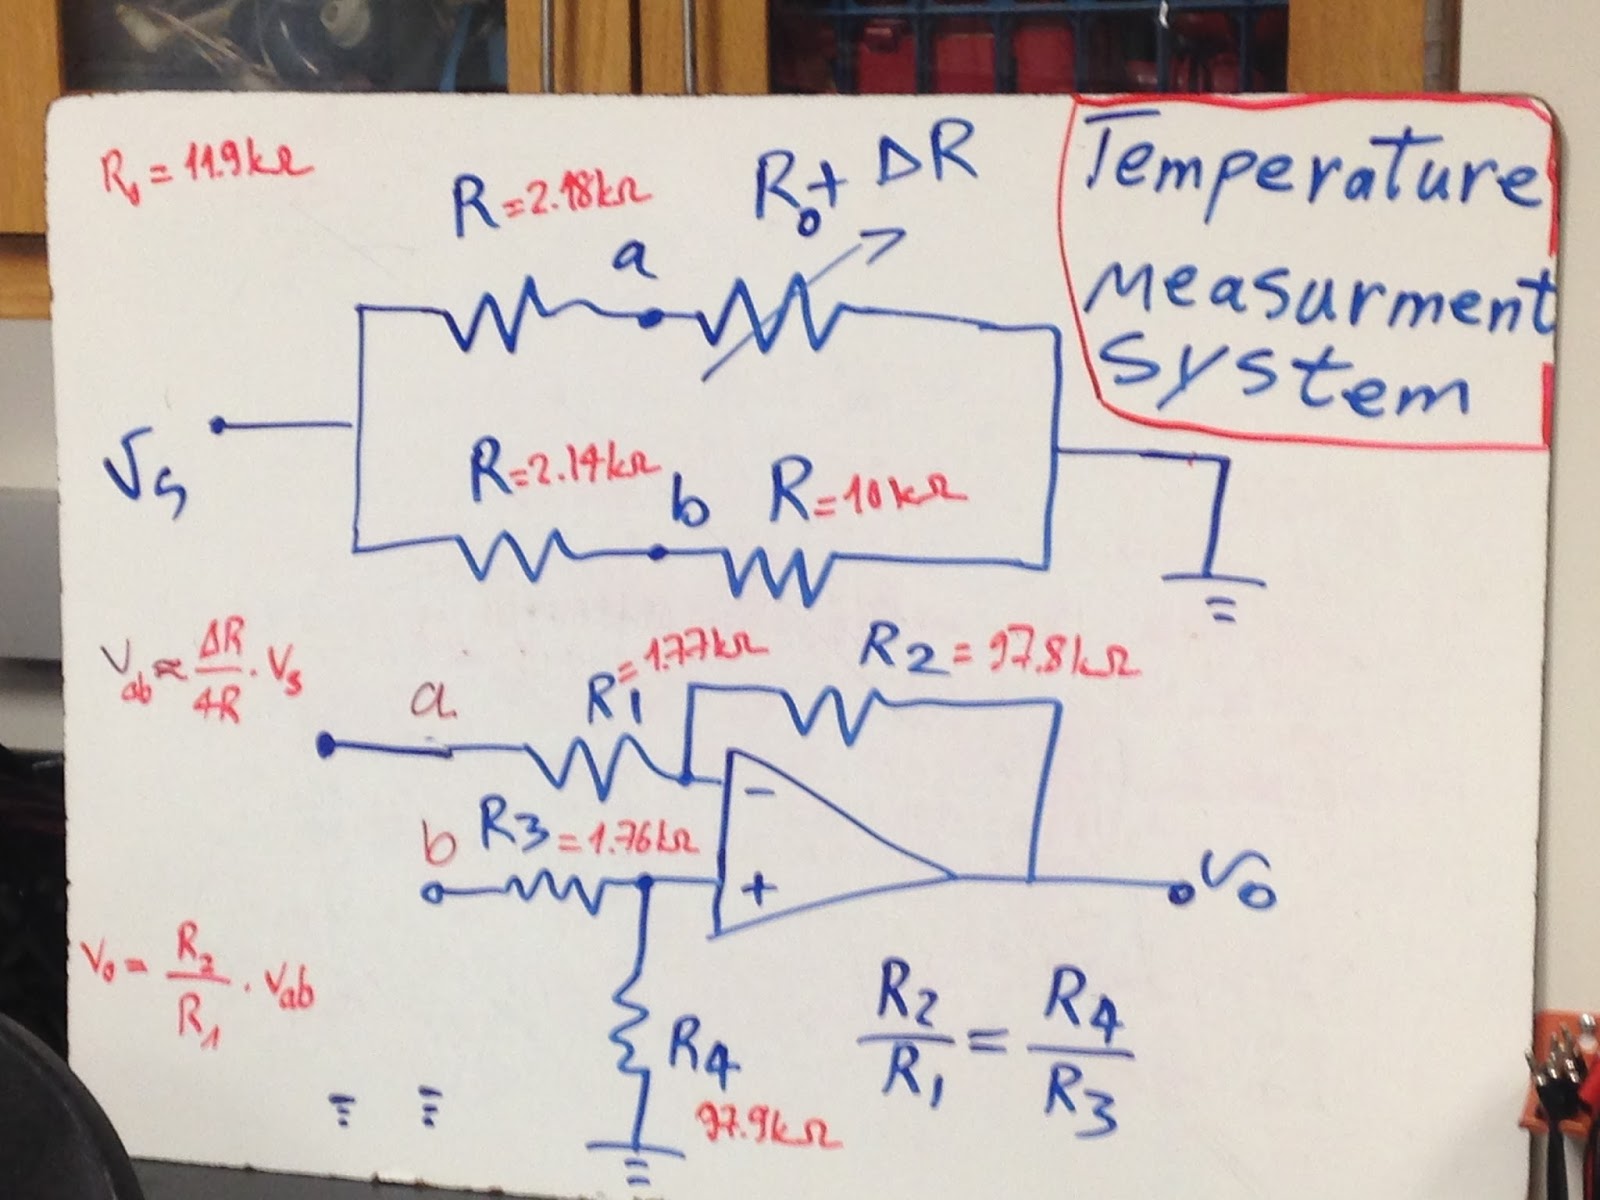 Temperature
Measurment
System
R₁ = 11.9kΩ
R=2.18kΩ
R₀+ ΔR
a
Vs
R=2.14kΩ
b
R=10kΩ
Vab ≈ ΔR/4R · Vs
a
R1=1.77kΩ
R2 = 97.8kΩ
-
b
R3=1.76kΩ
+
Vo
Vo = R2/R1 · Vab
R4
97.9kΩ
R2/R1 = R4/R3